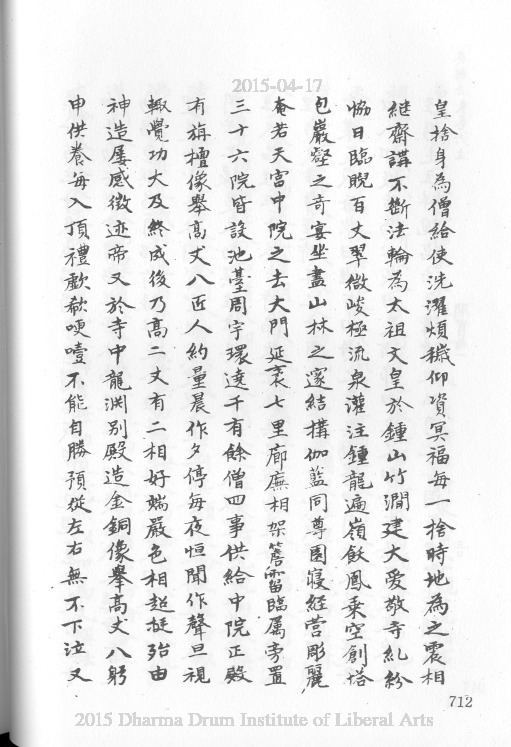 2015-04-17
皇捨身為僧給使洗濯煩穢仰資冥福每一捨時地為之震相
継齋講不斷法輪為太祖文皇於鍾山竹澗建大愛敬寺糺紛
恊日臨睨百丈翠微峻極流泉灌注鍾龍遍嶺飫鳳乗空創塔
包巖壑之奇宴坐盡山林之邃結構伽藍同尊園寢経营彫麗
奄若天宫中院之去大門延袤七里廊廡相架簷霤臨属旁置
三十六院皆設池䑓周宇環遶千有餘僧四事供給中院正殿
有旃檀像舉髙丈八匠人約量晨作夕停每夜恒聞作聲旦視
輙覺功大及終成後乃髙二丈有二相好端嚴色相超挺殆由
神造屡感徴迹帝又於寺中龍渊别殿造金銅像舉髙丈八躬
申供養每入頂禮歔欷哽噎不能自勝預從左右無不下泣又
712
2015 Dharma Drum Institute of Liberal Arts